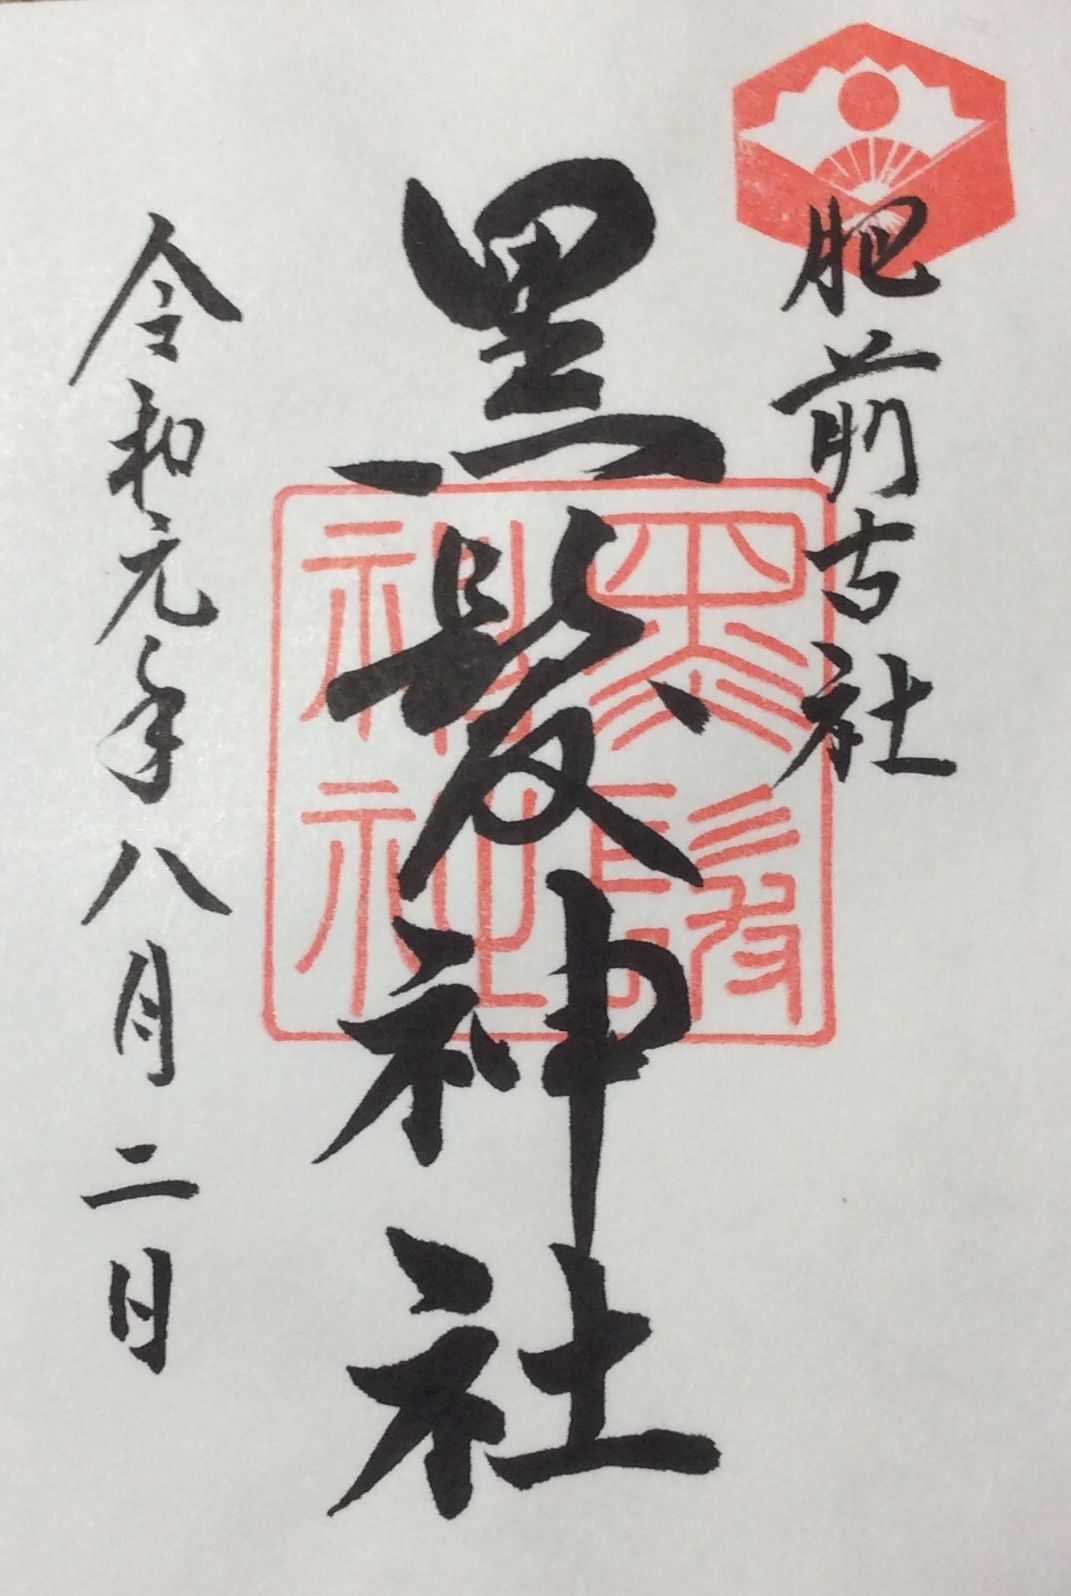 肥前古社
黒髪神社
令和元年八月二日
黒髪
神社